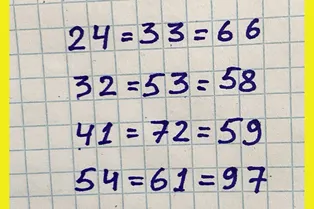 24=33=66
32=53=58
41=72=59
54=61=97